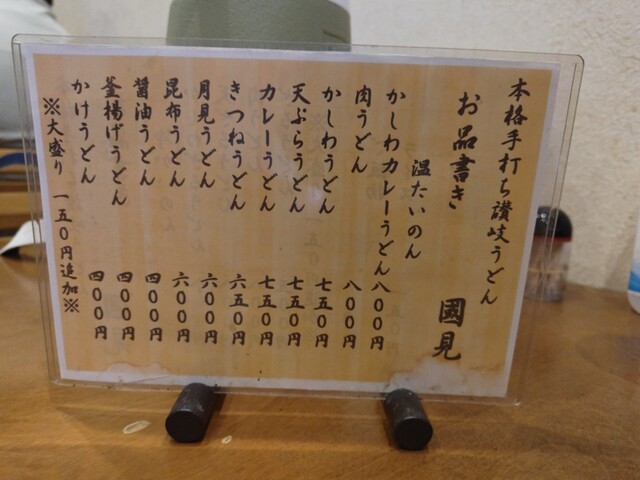 本格手打ち讃岐うどん
お品書き
國見
温たいのん
かしわカレーうどん 八〇〇円
肉うどん 八〇〇円
かしわうどん 七五〇円
天ぷらうどん 七五〇円
カレーうどん 七五〇円
きつねうどん 六五〇円
月見うどん 六〇〇円
昆布うどん 六〇〇円
醤油うどん 四〇〇円
釜揚げうどん 四〇〇円
かけうどん 四〇〇円
※大盛り 一五〇円追加※